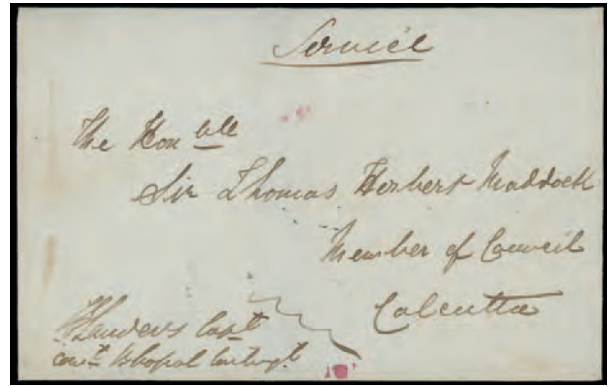 Service
The Honble
Sir Thomas Herbert Maddock
Member of Council
Calcutta
Capt
Bhopal Contingt